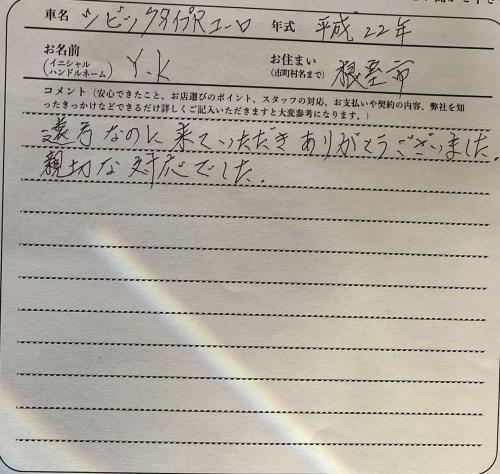 車名 シビックタイプRユーロ 年式 平成22年
お名前
(イニシャル
ハンドルネーム) Y.K
お住まい
(市町村名まで) 根室市
コメント(安心できたこと、お店選びのポイント、スタッフの対応、お支払いや契約の内容、弊社を知
ったきっかけなどできるだけ詳しくご記入いただきますと大変参考になります。)
遠方なのに来ていただきありがとうございました。
親切な対応でした。